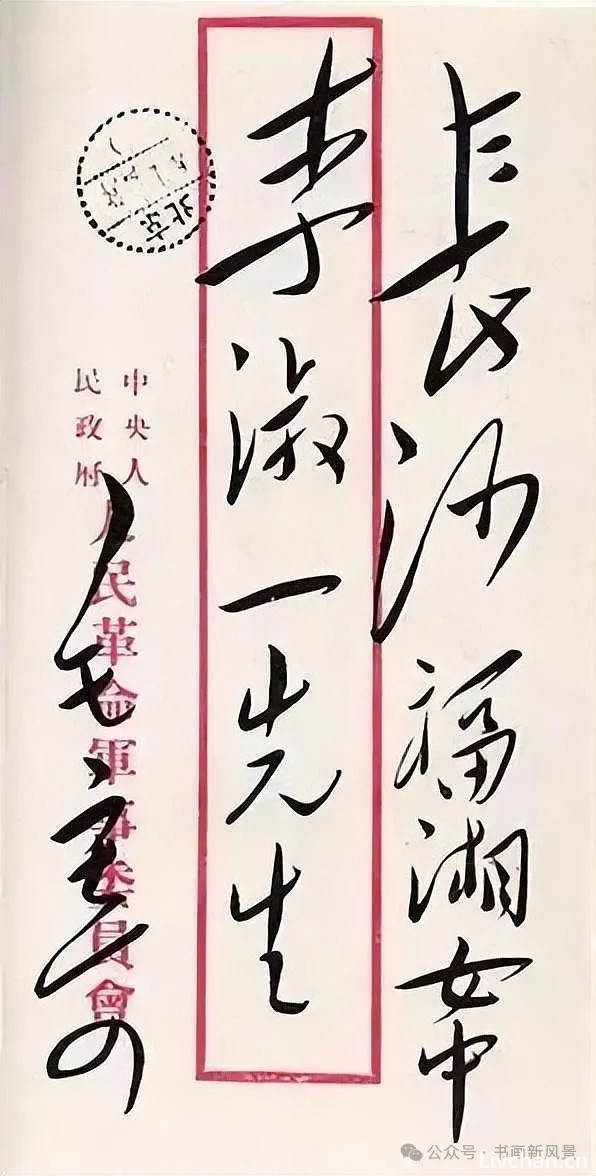 長沙福湘女中
李淑一先生
中央人
民政府
人民革命軍事委員會
毛
北京
公众号·书画新风景
Livehan.cn